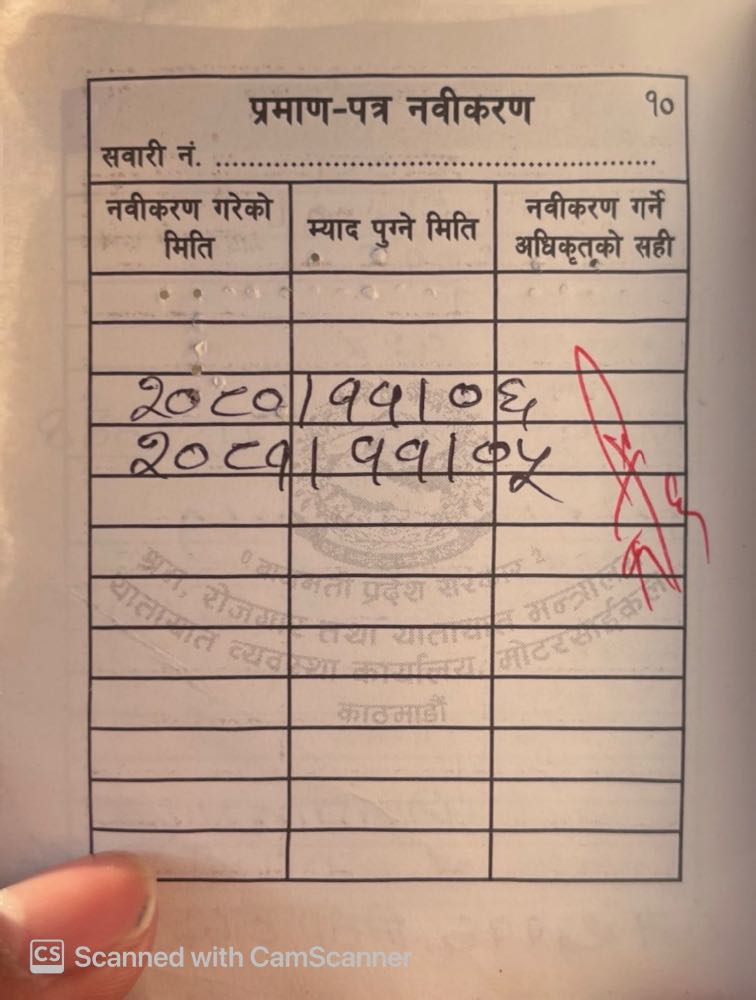 प्रमाण-पत्र नवीकरण १०
सवारी नं. ........................................................
नवीकरण गरेको मिति म्याद पुग्ने मिति नवीकरण गर्ने अधिकृतको सही
२०८०|११|०६
२०८१|११|०५
बागमती प्रदेश सरकार
श्रम, रोजगार तथा यातायात मन्त्रालय
यातायात व्यवस्था कार्यालय, मोटरसाईकल
काठमाडौं
CS Scanned with CamScanner